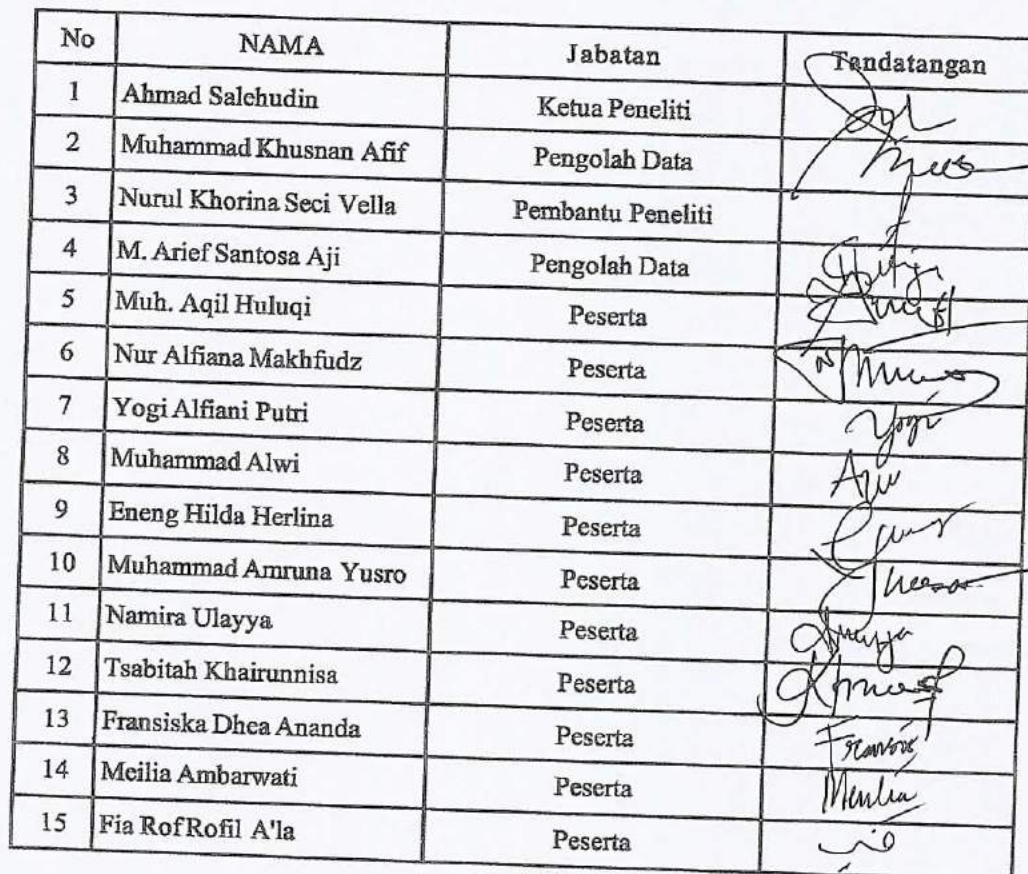 No NAMA Jabatan Tandatangan
1 Ahmad Salehudin Ketua Peneliti
2 Muhammad Khusnan Afif Pengolah Data
3 Nurul Khorina Seci Vella Pembantu Peneliti
4 M. Arief Santosa Aji Pengolah Data
5 Muh. Aqil Huluqi Peserta
6 Nur Alfiana Makhfudz Peserta
7 Yogi Alfiani Putri Peserta Yogi
8 Muhammad Alwi Peserta
9 Eneng Hilda Herlina Peserta
10 Muhammad Amruna Yusro Peserta
11 Namira Ulayya Peserta
12 Tsabitah Khairunnisa Peserta
13 Fransiska Dhea Ananda Peserta
14 Meilia Ambarwati Peserta
15 Fia RofRofil A'la Peserta